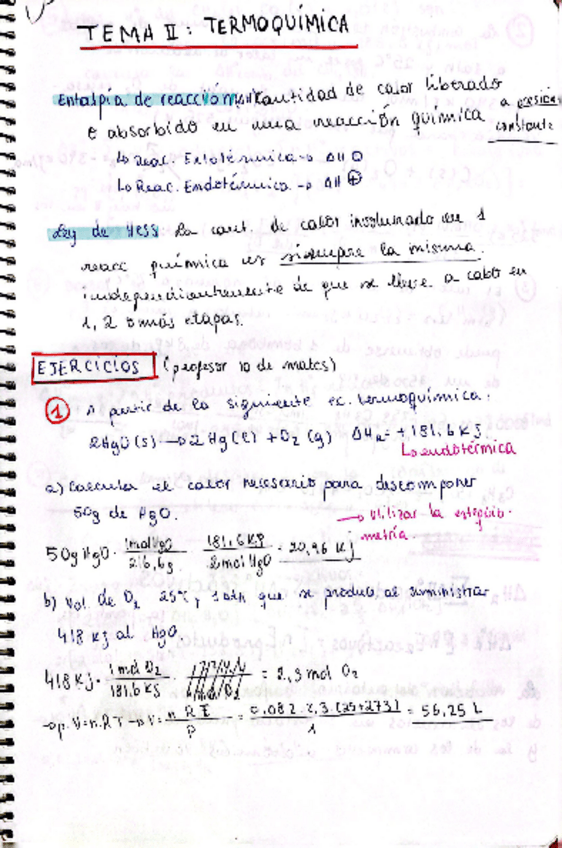 TEMA II: TERMOQUÍMICA
Entalpía de reacción (ΔH): Cantidad de calor liberado
o absorbido en una reacción química a presión
constante
↳ Reac. Exotérmica → ΔH ⊖
↳ Reac. Endotérmica → ΔH ⊕
Ley de Hess La cant. de calor involucrado en 1
reacc química es siempre la misma.
independientemente de que se lleve a cabo en
1, 2 o más etapas.
EJERCICIOS (profesor 10 de mates)
① A partir de la siguiente ec. termoquímica.
2HgO(s) → 2Hg(l) + O₂(g) ΔHR = +181,6 kJ
↳ endotérmica
a) Calcular el calor necesario para descomponer
50g de HgO.
→ Utilizar la estequio-
metría
50g HgO · 1mol HgO / 216,6g · 181,6 kJ / 2mol HgO = 20,96 kJ
b) Vol. de O₂ 25℃, 1atm que se produce al suministrar
418 kJ al HgO
418 kJ · 1mol O₂ / 181,6 kJ · = 2,3 mol O₂
→ p·V=n·R·T → V = n·R·T / P = 0,082·2,3·(25+273) / 1 = 56,25 L